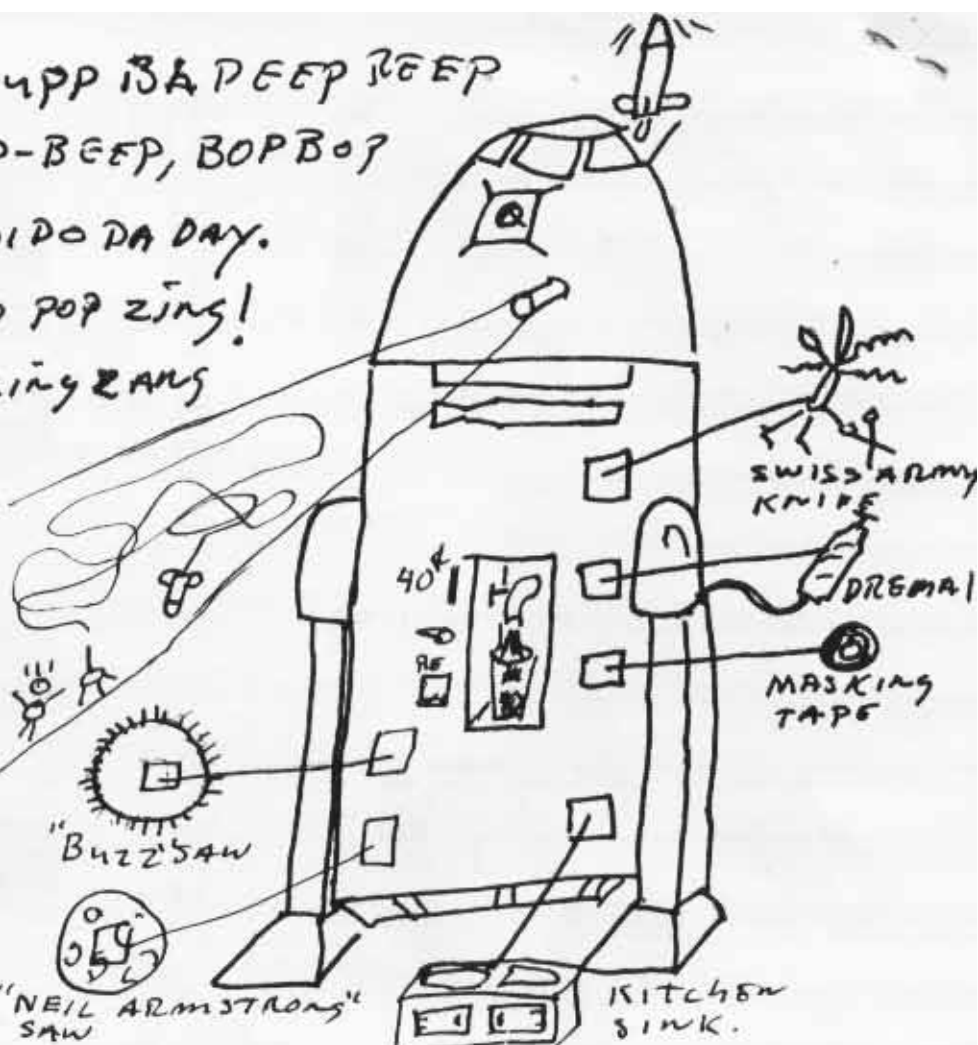 BA PEEP BEEP
-BEEP, BOP BOP
DO DA DAY.
POP zing!
ZANG
Q
SWISS ARMY
KNIFE
40¢
DREMAI
RE
MASKING
TAPE
"BUZZ" SAW
"NEIL ARMSTRONG"
SAW
KITCHEN
SINK.